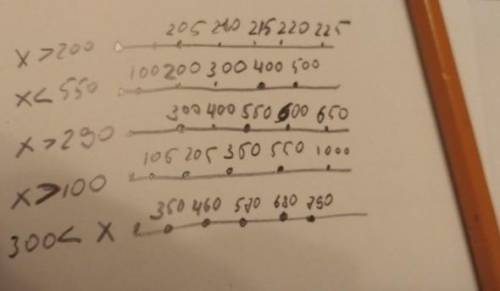 205 210 215 220 225
x > 200
100 200 300 400 500
x < 550
300 400 550 600 650
x > 290
105 205 350 550 1000
x > 100
350 460 570 680 790
300 < x